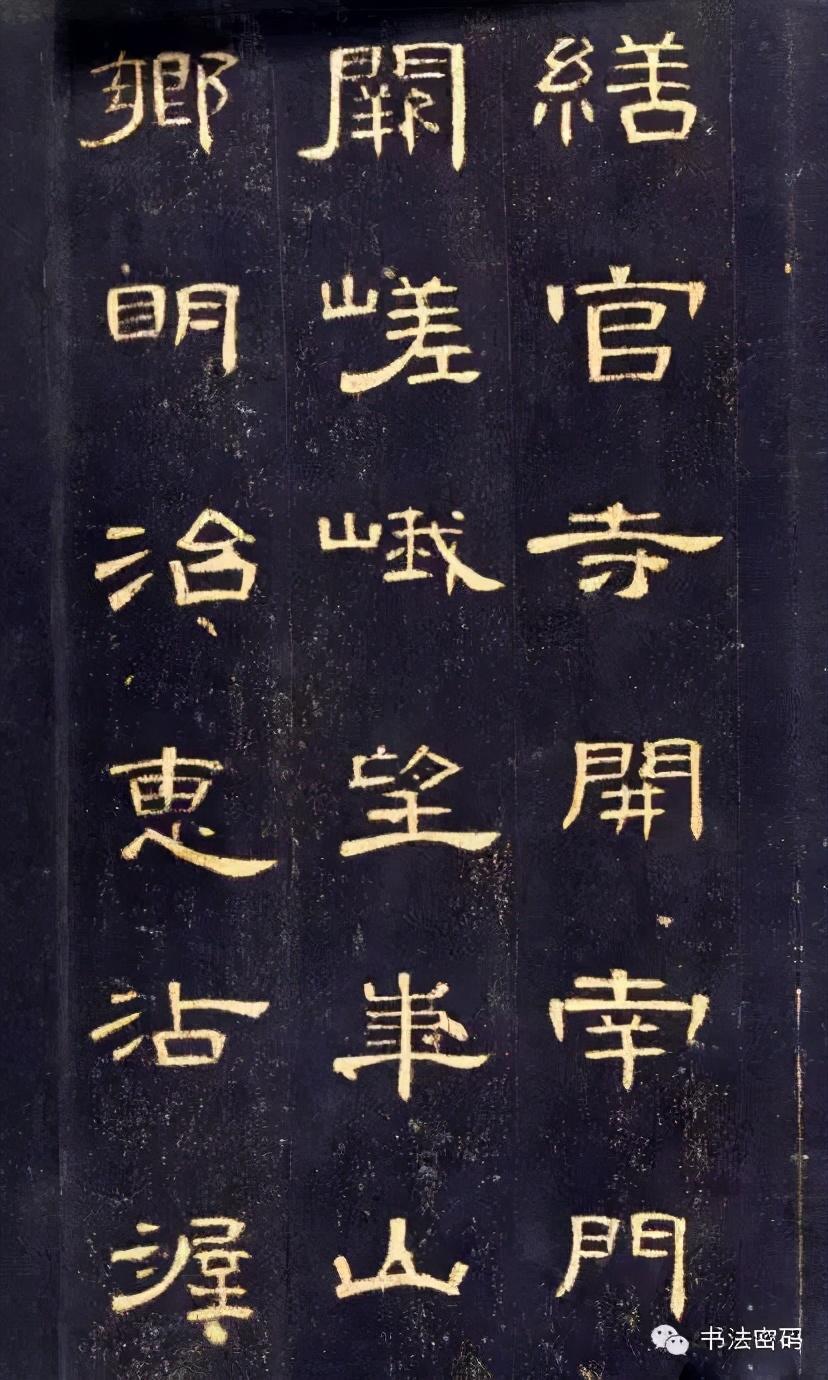 繕官寺開南門
闕嵯峨望華山
鄉明治惠沾渥
书法密码